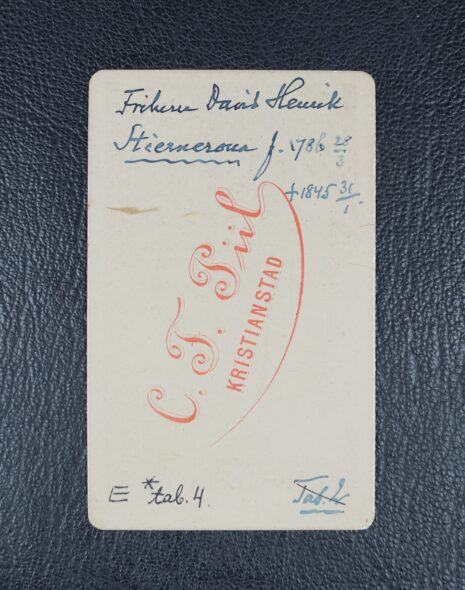 Friherre David Henrik
Stiernerona f. 1786 28/3
† 1845 31/1.
C. F. Piil
KRISTIANSTAD
E *tab. 4.
Tab. 2